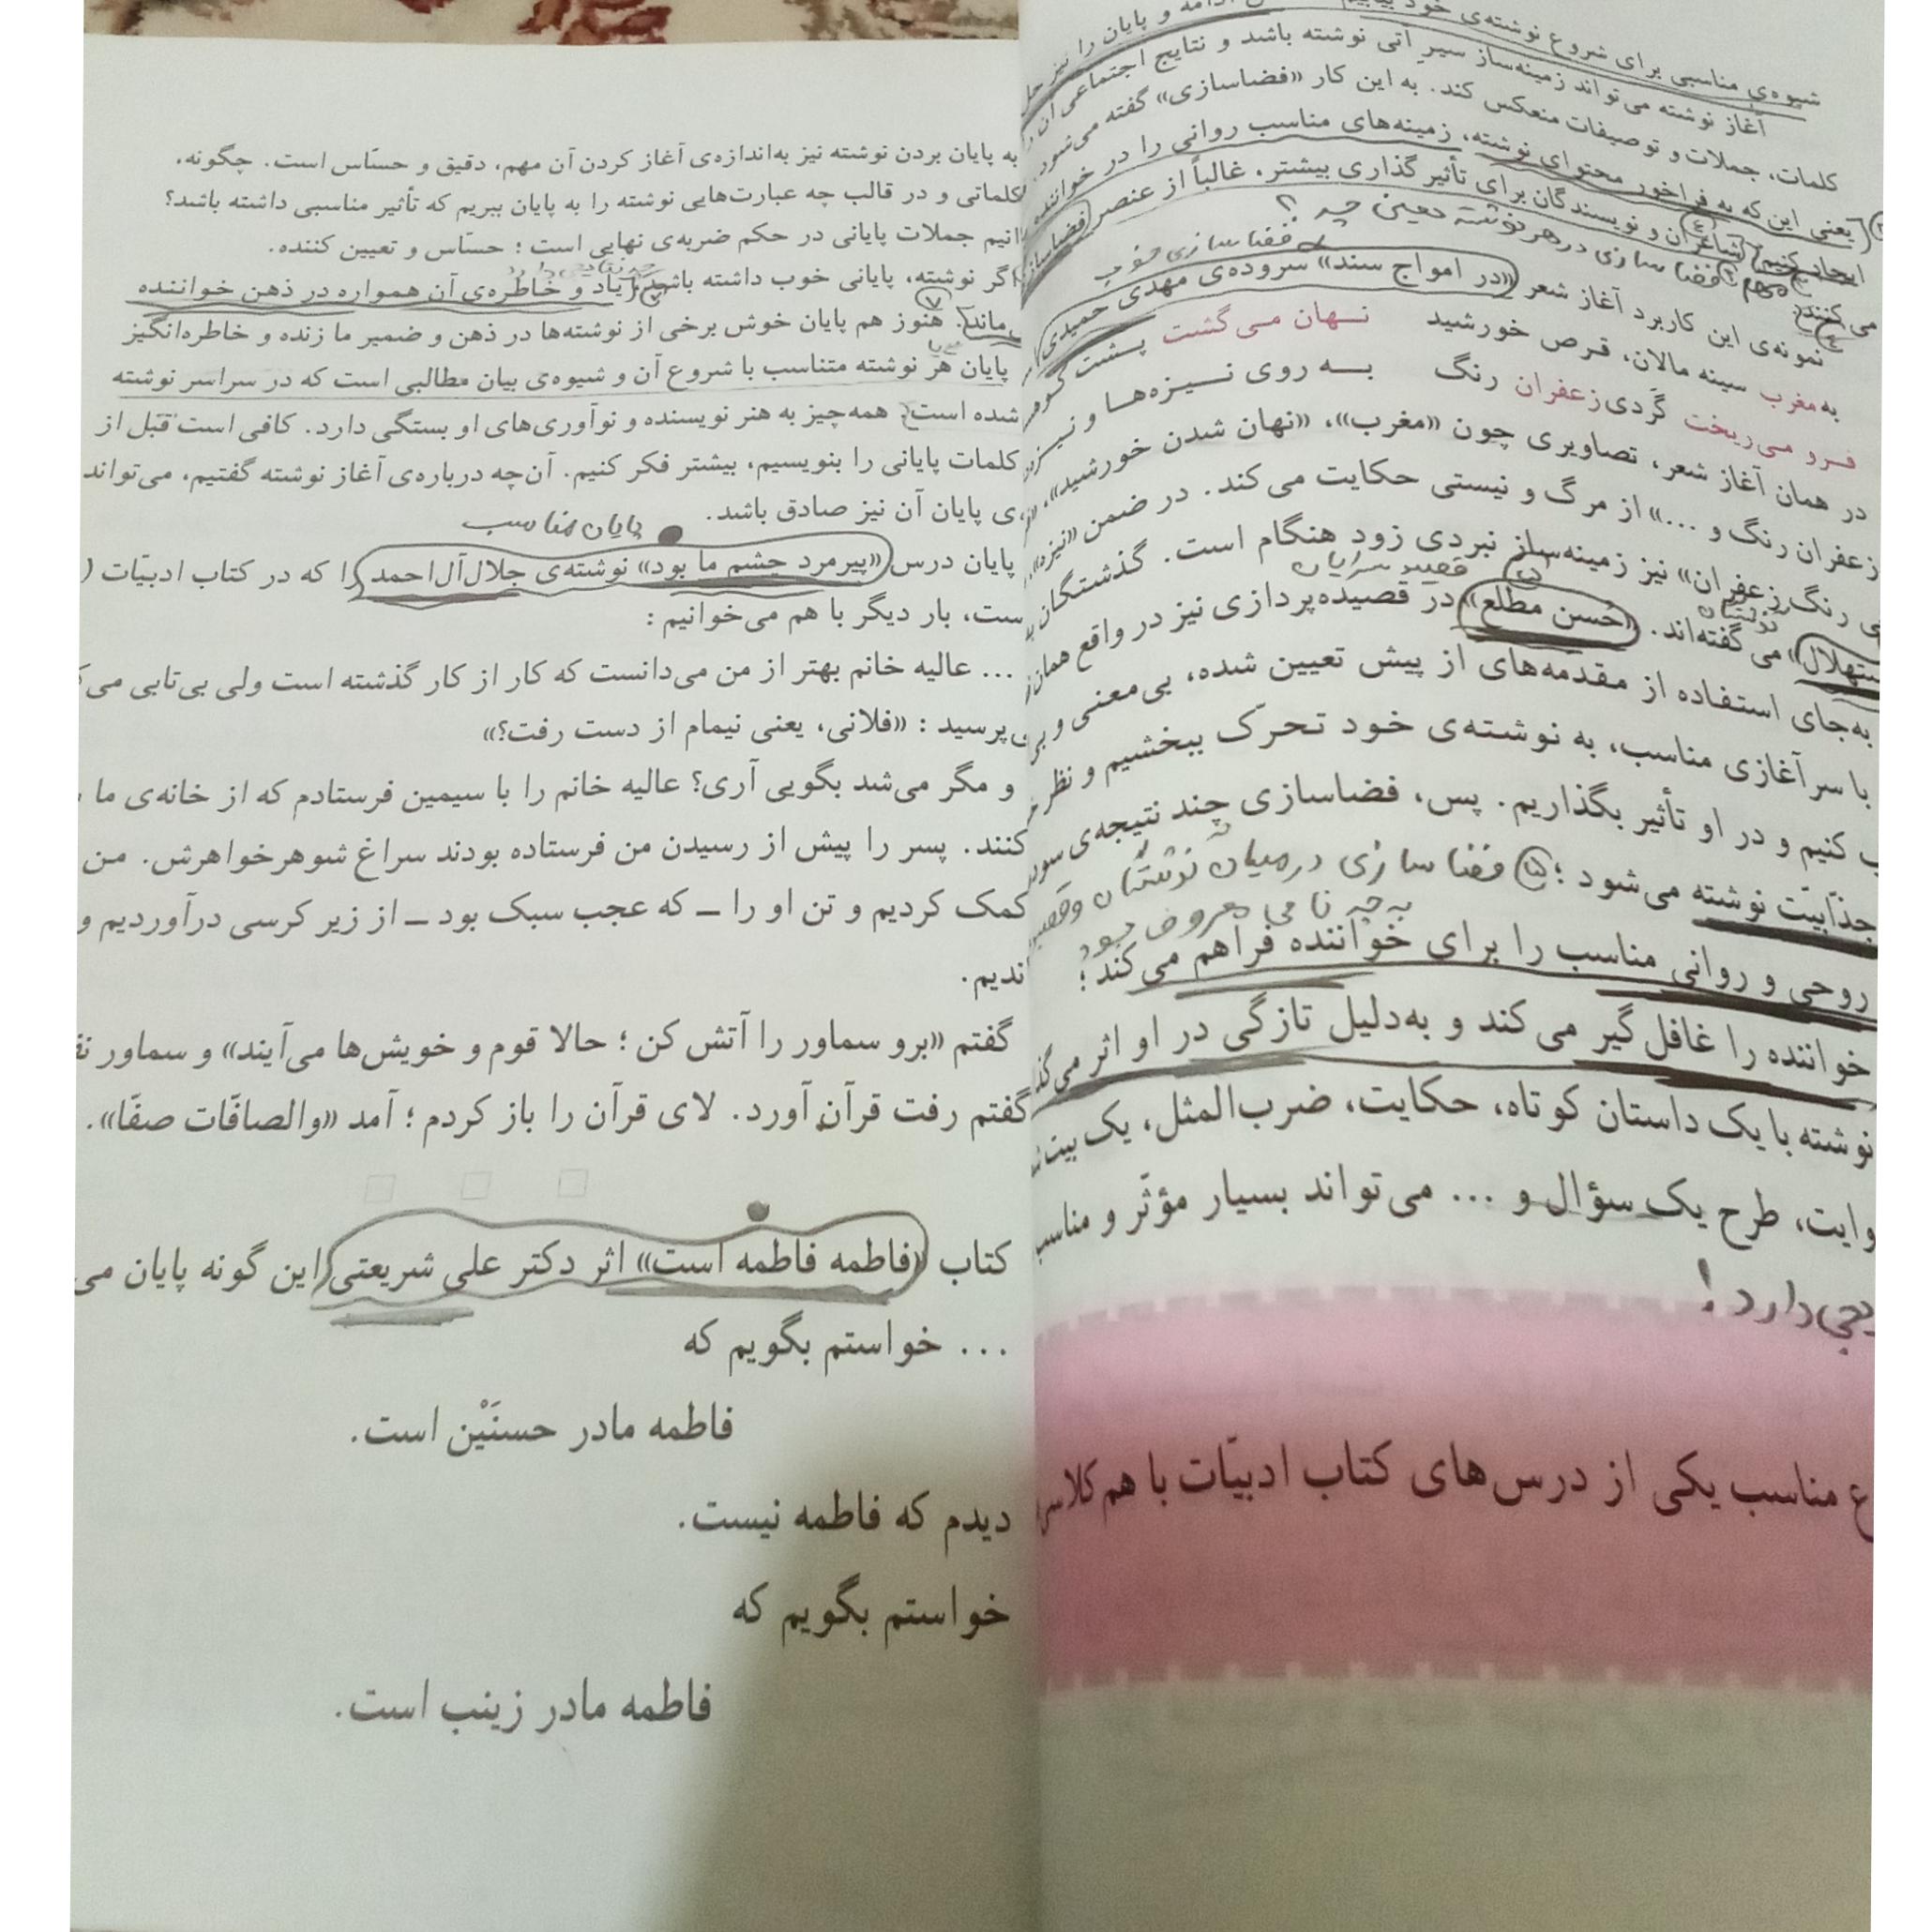 شیوه‌ی مناسبی برای شروع نوشته‌ی خود بیابیم ادامه و پایان را نیز
آغاز نوشته می‌تواند زمینه‌ساز سیر آتی نوشته باشد و نتایج اجتماعی آن
کلمات، جملات و توصیفات منعکس کند. به این کار «فضاسازی» گفته می‌شود.
یعنی این که به فراخور محتوای نوشته، زمینه‌های مناسب روانی را در خواننده
ایجاد کنیم. شاعران و نویسندگان برای تأثیر گذاری بیشتر، غالباً از عنصر فضاسازی
می‌کنند.
مهم فضا سازی در هر نوشته یعنی چه؟
فضا سازی خوب
نمونه‌ی این کاربرد آغاز شعر «در امواج سند» سروده‌ی مهدی حمیدی
به مغرب سینه مالان، قرص خورشید نهان می‌گشت پشت
فرو می‌ریخت گردی زعفران رنگ به روی نیزه‌ها و
در همان آغاز شعر، تصاویری چون «مغرب»، «نهان شدن خورشید»،
زعفران رنگ و ...» از مرگ و نیستی حکایت می‌کند. در ضمن «نیزه»،
رنگ زعفران» نیز زمینه‌ساز نبردی زود هنگام است. گذشتگان
قصیده سرایان
می‌گفته‌اند. «حسن مطلع» در قصیده‌پردازی نیز در واقع همان
به‌جای استفاده از مقدّمه‌های از پیش تعیین شده، بی‌معنی و
با سرآغازی مناسب، به نوشته‌ی خود تحرّک ببخشیم و نظر
کنیم و در او تأثیر بگذاریم. پس، فضاسازی چند نتیجه‌ی
جذّابیّت نوشته می‌شود ؛
۵ فضا سازی در میان نوشتگان و
به چه نامی معروف بود
روحی و روانی مناسب را برای خواننده فراهم می‌کند ؛
خواننده را غافل‌گیر می‌کند و به‌دلیل تازگی در او اثر
نوشته با یک داستان کوتاه، حکایت، ضرب‌المثل، یک بیت
طرح یک سؤال و ... می‌تواند بسیار مؤثّر و
دارد !
مناسب یکی از درس‌های کتاب ادبیّات با
به پایان بردن نوشته نیز به‌اندازه‌ی آغاز کردن آن مهم، دقیق و حسّاس است. چگونه،
کلماتی و در قالب چه عبارت‌هایی نوشته را به پایان ببریم که تأثیر مناسبی داشته باشد؟
جملات پایانی در حکم ضربه‌ی نهایی است ؛ حسّاس و تعیین کننده.
اگر نوشته، پایانی خوب داشته باشد یاد و خاطره‌ی آن همواره در ذهن خواننده
ماند. ۷ هنوز هم پایان خوش برخی از نوشته‌ها در ذهن و ضمیر ما زنده و خاطره‌انگیز
پایان هر نوشته متناسب با شروع آن و شیوه‌ی بیان مطالبی است که در سراسر نوشته
شده است همه‌چیز به هنر نویسنده و نوآوری‌های او بستگی دارد. کافی است قبل از
کلمات پایانی را بنویسیم، بیشتر فکر کنیم. آن‌چه درباره‌ی آغاز نوشته گفتیم، می‌تواند
ی پایان آن نیز صادق باشد.
پایان مناسب
پایان درس «پیرمرد چشم ما بود» نوشته‌ی جلال‌آل‌احمد را که در کتاب ادبیّات (
ست، بار دیگر با هم می‌خوانیم :
... عالیه خانم بهتر از من می‌دانست که کار از کار گذشته است ولی بی‌تابی
پرسید : «فلانی، یعنی نیمام از دست رفت؟»
و مگر می‌شد بگویی آری؟ عالیه خانم را با سیمین فرستادم که از خانه‌ی ما
کنند. پسر را پیش از رسیدن من فرستاده بودند سراغ شوهرخواهرش. من
کمک کردیم و تن او را ــ که عجب سبک بود ــ از زیر کرسی درآوردیم و
ندیم.
گفتم «برو سماور را آتش کن ؛ حالا قوم و خویش‌ها می‌آیند» و سماور
گفتم رفت قرآن آورد. لای قرآن را باز کردم ؛ آمد «والصافّات صفّا».
کتاب «فاطمه فاطمه است» اثر دکتر علی شریعتی این گونه پایان می
... خواستم بگویم که
فاطمه مادر حسنَیْن است.
دیدم که فاطمه نیست.
خواستم بگویم که
فاطمه مادر زینب است.